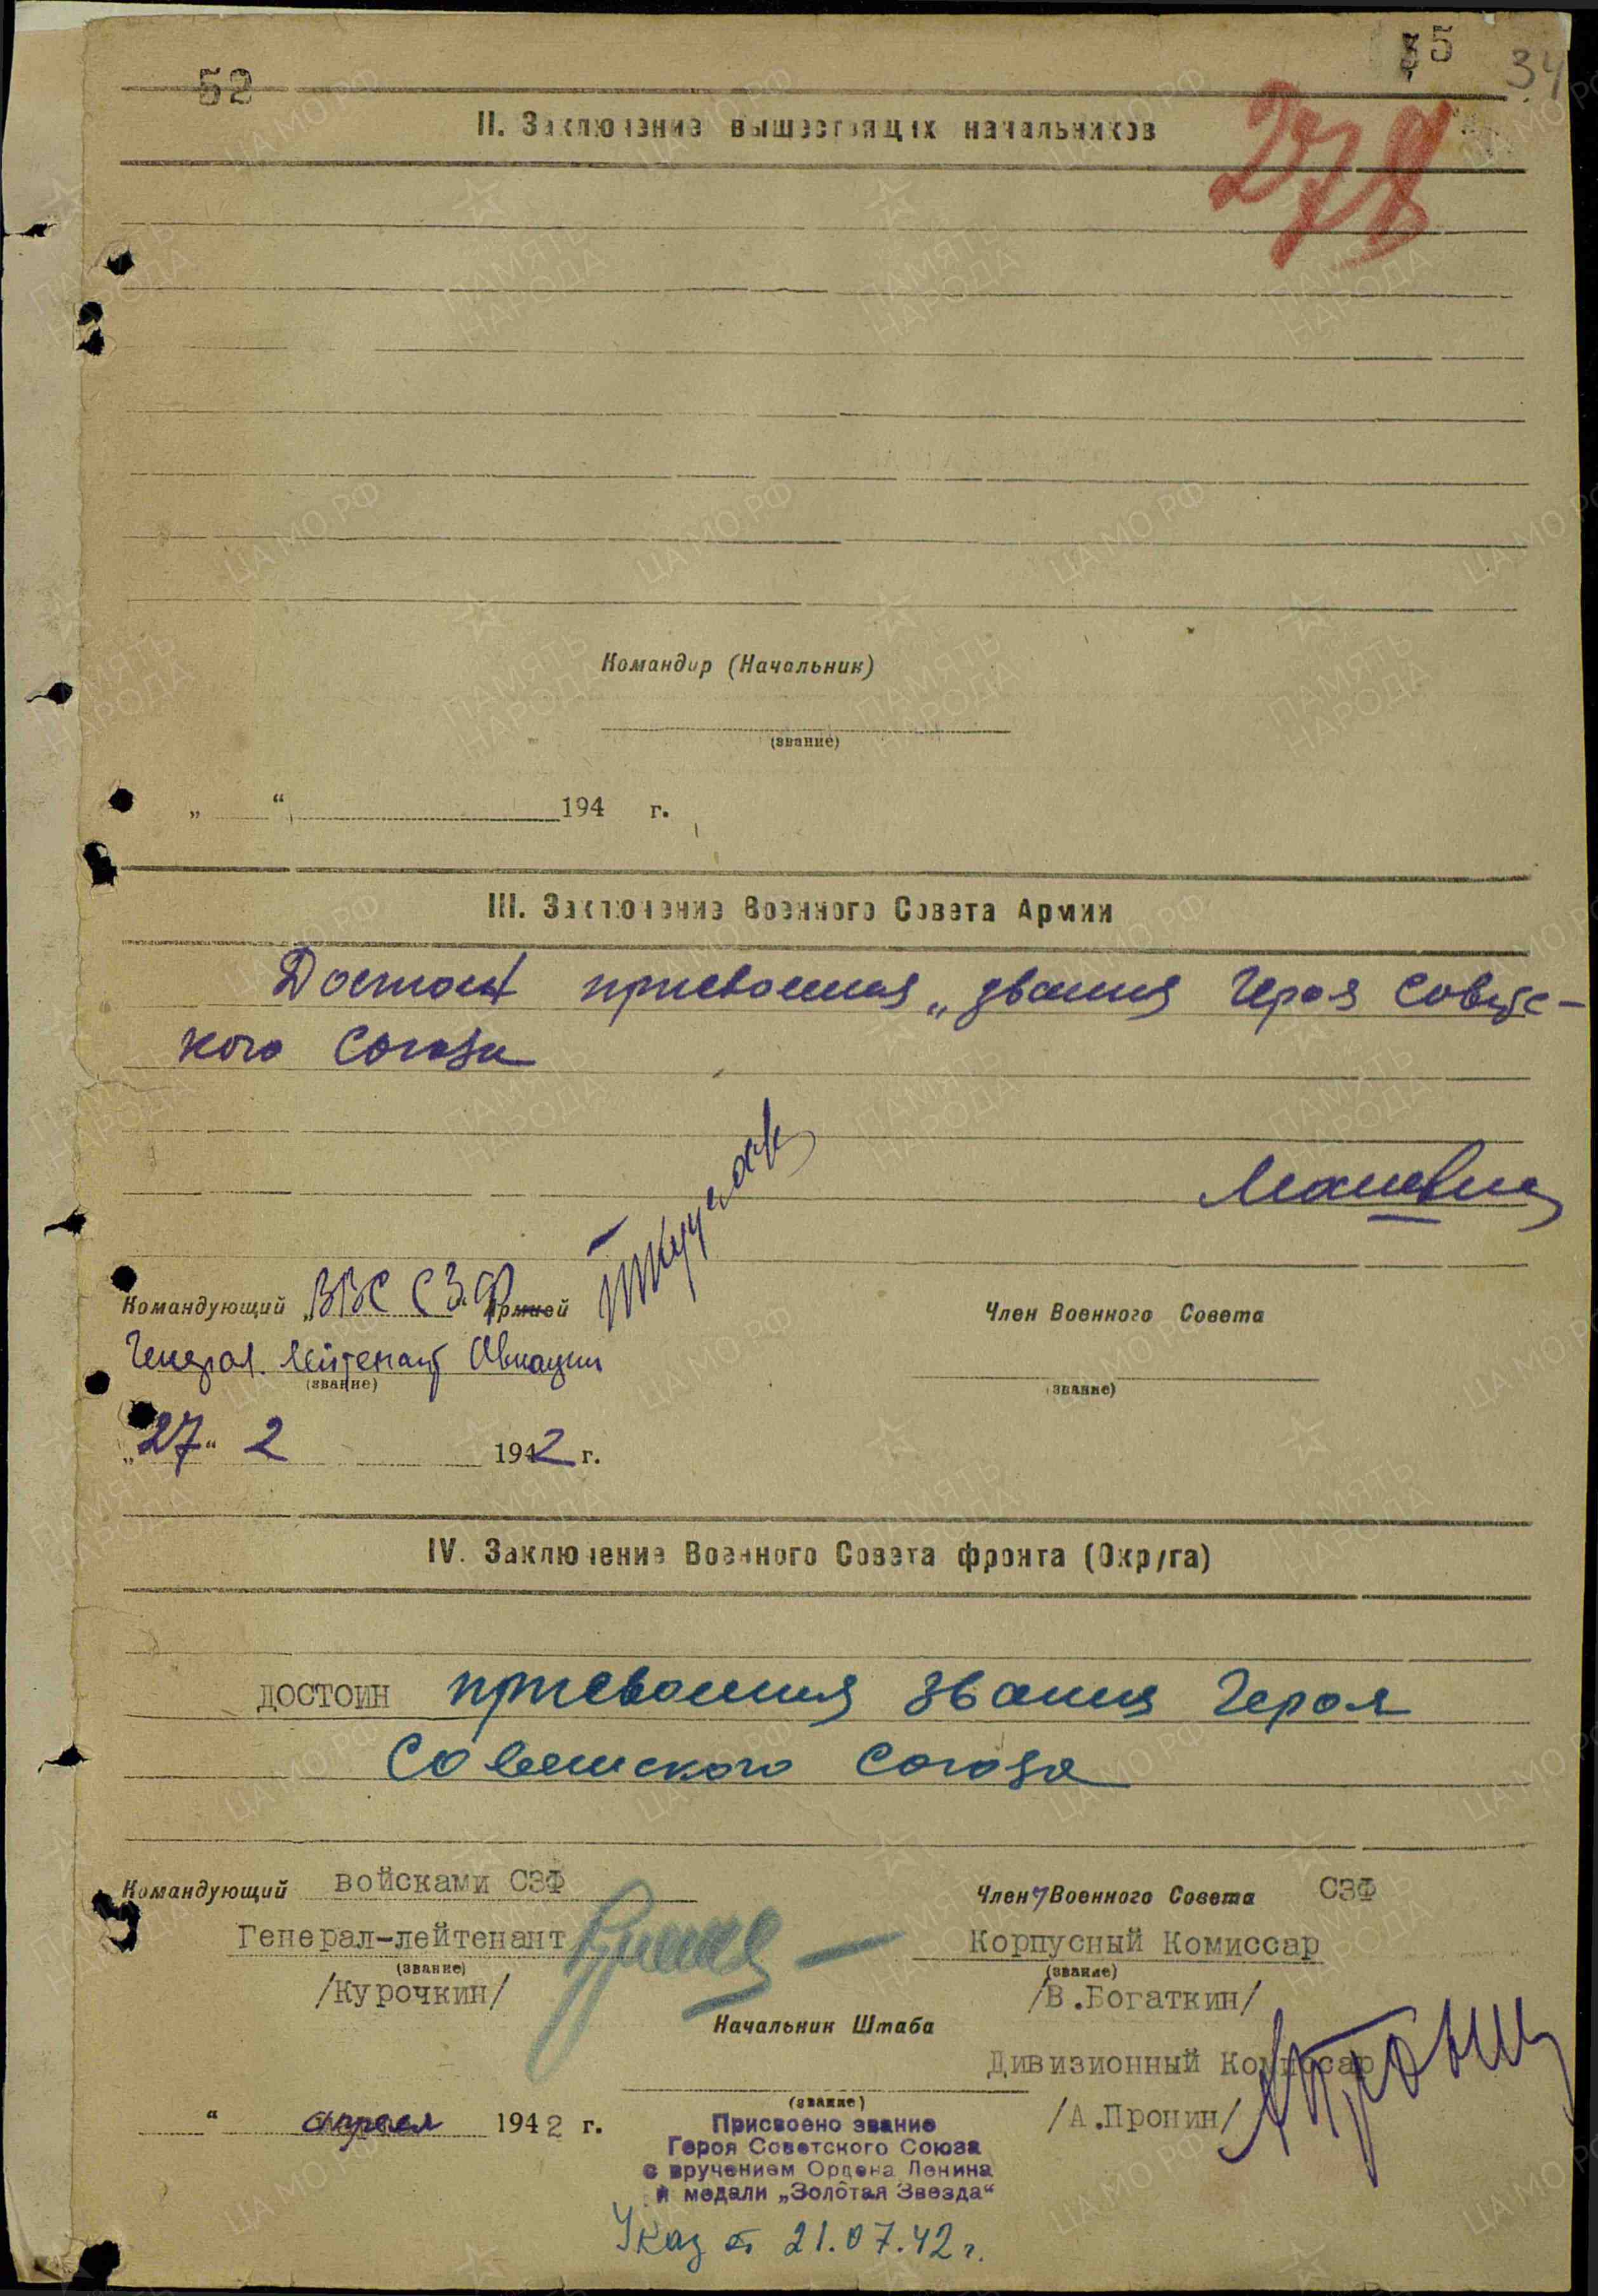 52
35
34
II. Заключение вышестоящих начальников
278
Командир (Начальник)
(звание)
„ “ 194 г.
III. Заключение Военного Совета Армии
Достоин присвоения „звания Героя Советс-
кого Союза
Командующий ВВС СЗФ Армией
Член Военного Совета
Генерал-лейтенант Авиации
(звание)
(звание)
„27“ 2 1942 г.
IV. Заключение Военного Совета фронта (Округа)
достоин присвоения звания Героя
Советского Союза
Командующий войсками СЗФ
Член Военного Совета СЗФ
Генерал-лейтенант
Корпусный Комиссар
(звание)
(звание)
/Курочкин/
/В.Богаткин/
Начальник Штаба
Дивизионный Комиссар
(звание)
/А.Пронин/
“ апреля 1942 г.
Присвоено звание
Героя Советского Союза
с вручением Ордена Ленина
и медали „Золотая Звезда“
Указ от 21.07.42 г.
ЦАМО.РФ
ПАМЯТЬ
НАРОДА